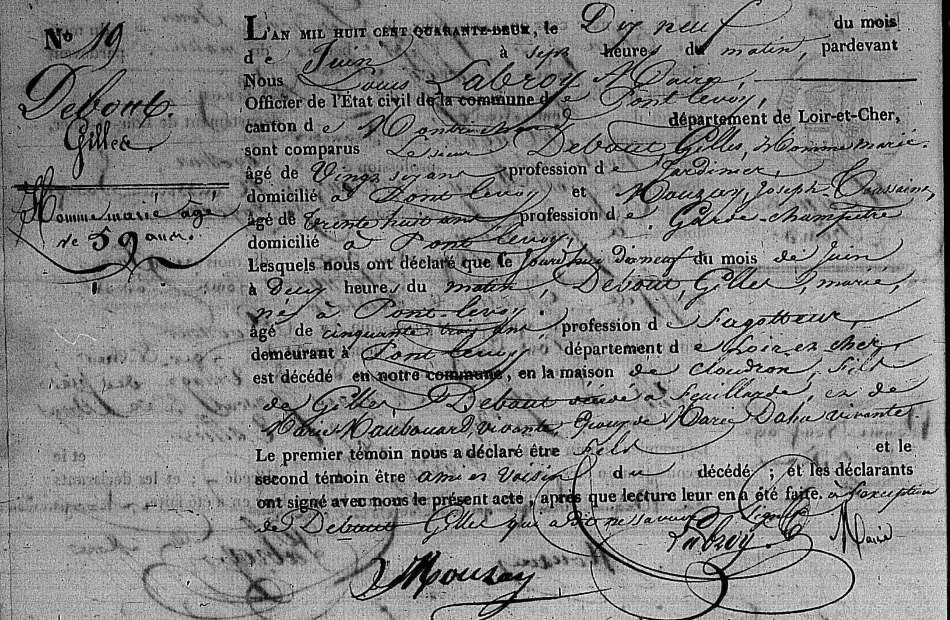 No 19
Debout
Gilles.
Homme marié âgé
de 59 ans.
L'AN MIL HUIT CENT QUARANTE-DEUX, le Dix neuf du mois
de Juin à sept heures du matin, pardevant
Nous Louis Labroy Maire,
Officier de l'État civil de la commune de Pont levoy,
canton de département de Loir-et-Cher,
sont comparus Le sieur Debout Gilles, homme marié.
âgé de Vingt ans profession de Jardinier,
domicilié à Pont levoy et Mouzay, Joseph Toussaint,
âgé de trente huit ans profession de Garde-champêtre
domicilié à Pont levoy,
Lesquels nous ont déclaré que le Jourd'huy dix neuf du mois de Juin
à Deux heures du matin, Debout, Gilles, marié,
né à Pont-levoy.
âgé de cinquante ans profession de Fagotteur,
demeurant à Pont levoy, département de Loir et cher,
est décédé en notre commune, en la maison de fils
de Gilles Debout décédé à Feuillarde, et de
Marie Maubouard, vivante, Epoux de Marie Dahu vivante
Le premier témoin nous a déclaré être fils et le
second témoin être ami et voisin du décédé ; et les déclarants
ont signé avec nous le présent acte, après que lecture leur en a été faite. à l'exception
de Debout Gilles qui a dit ne savoir signer
Labroy Maire
Mouzay